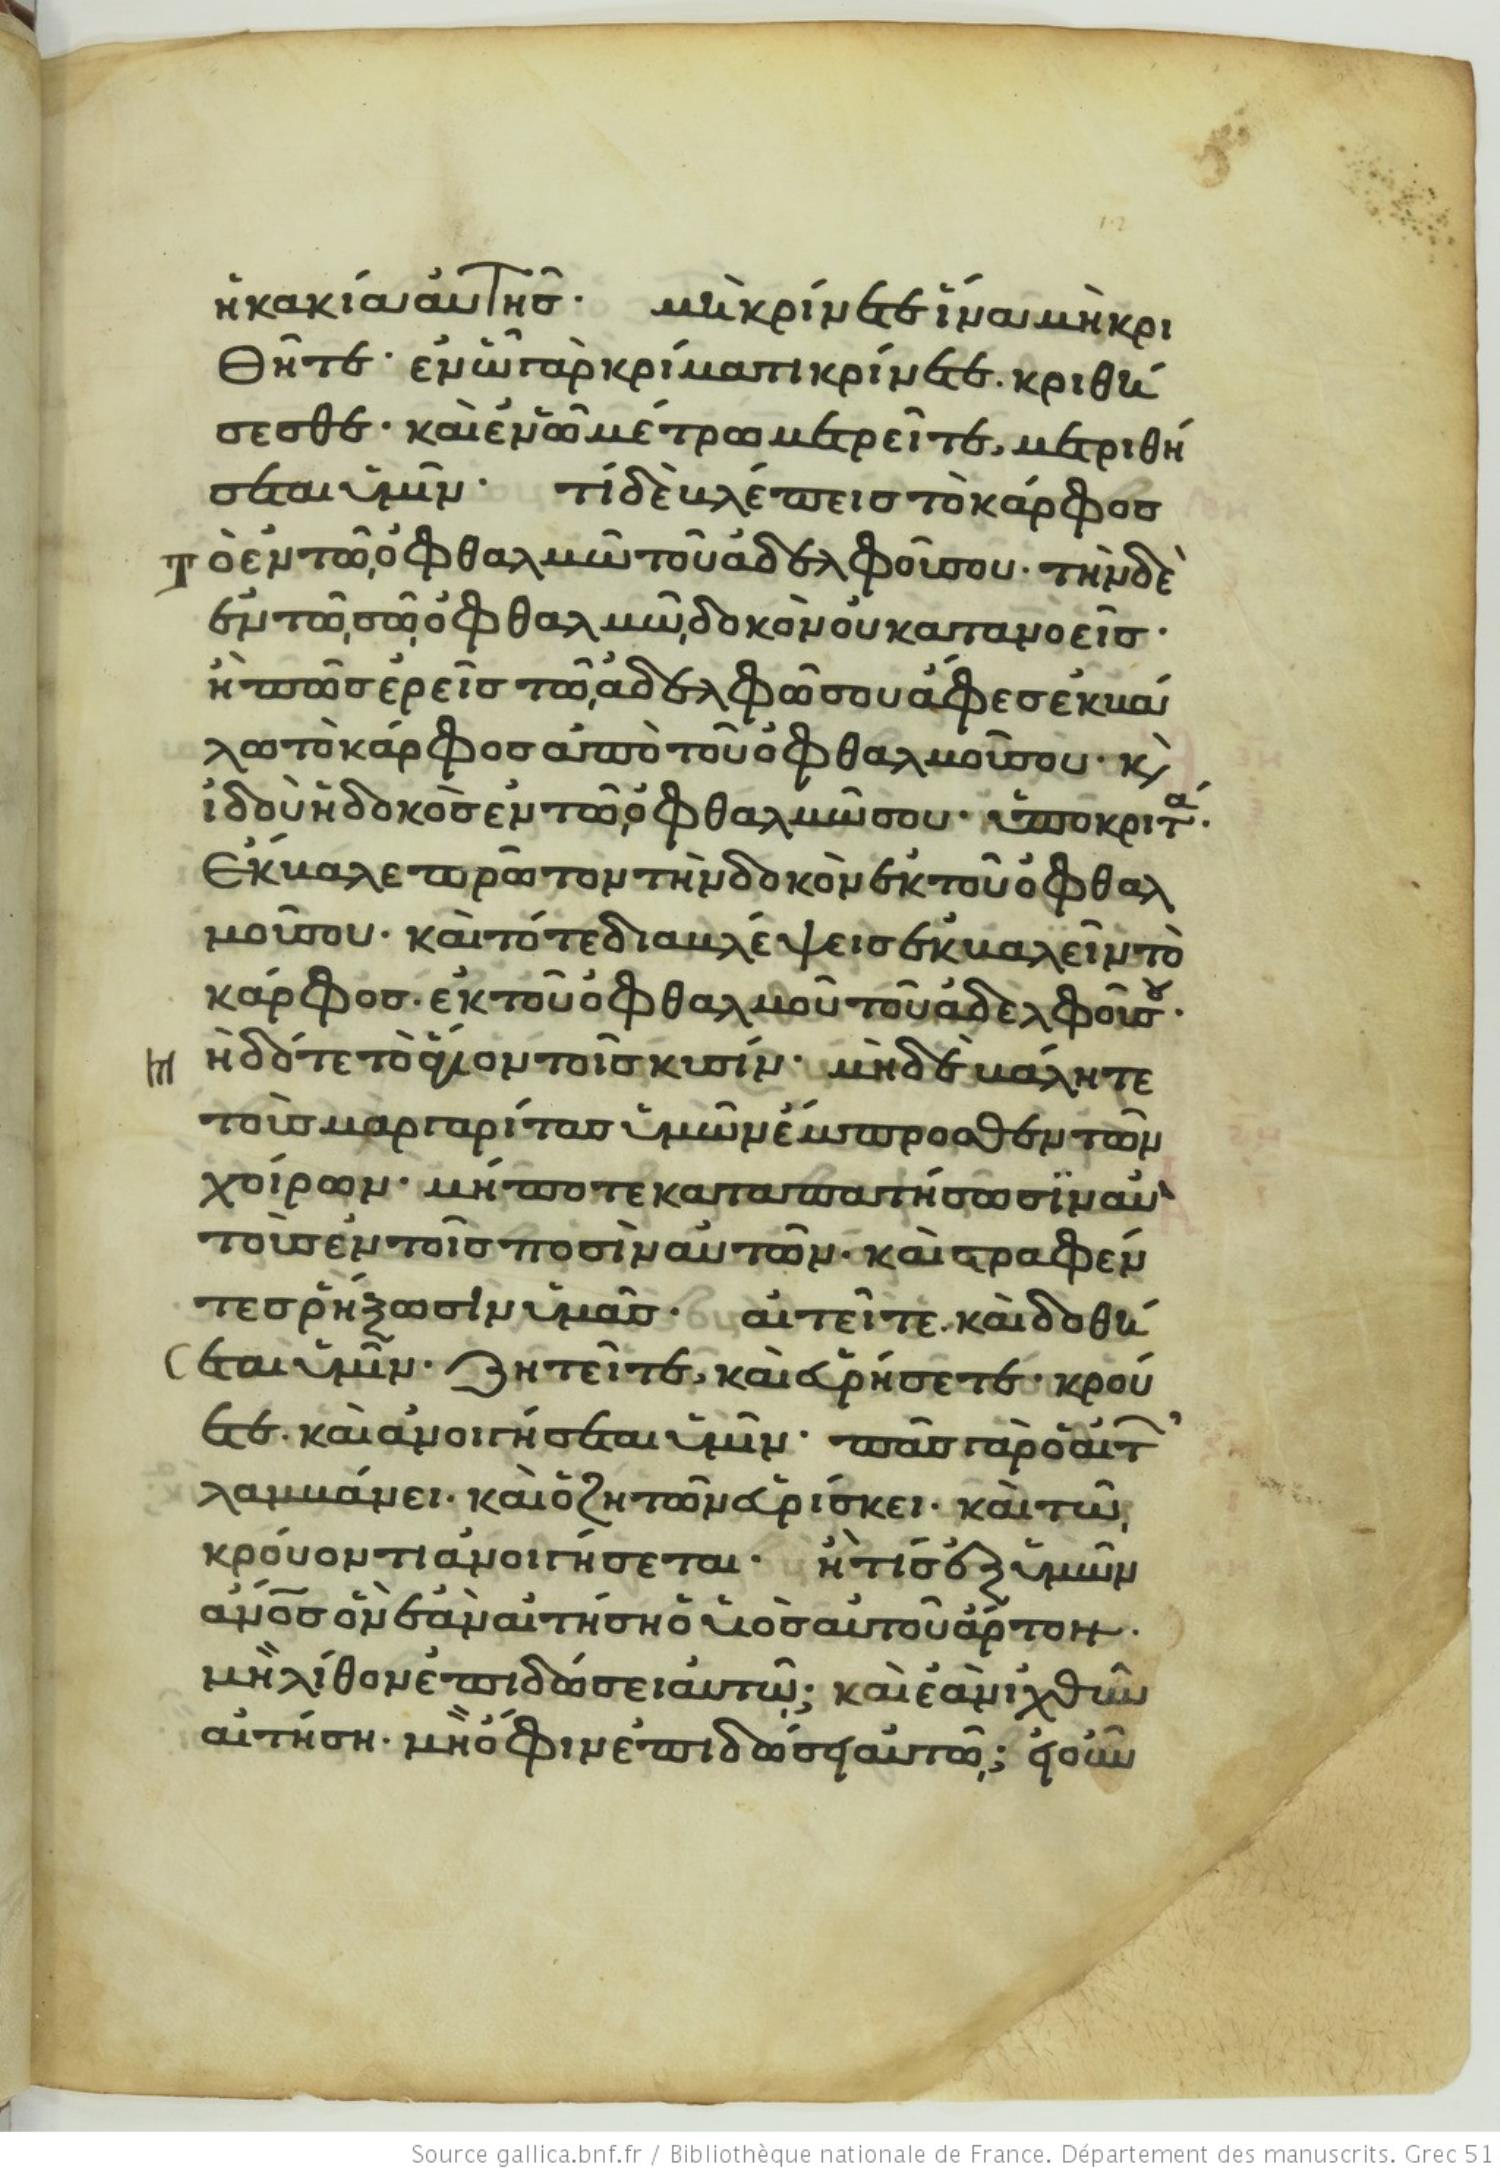 ἡ κακία αὐτῆσ· μὴ κρίνετε ἵνα μὴ κρι
θῆτε· ἐν ὧ γὰρ κρίματι κρίνετε. κριθή
σεσθε· καὶ ἐν ὧ μέτρω μετρεῖτε, μετριθή
σεται ὑμῖν· τί δὲ βλέπεισ τὸ κάρφοσ
Τ ὸ ἐν τῶ, ὀφθαλμῶ τοῦ ἀδελφοῦ σου· τὴν δὲ
ἐν τῶ, σῶ, ὀφθαλμῶ, δοκὸν οὐ κατανοεῖσ·
ἢ πῶσ ἐρεῖσ τῶ, ἀδελφῶ σου ἄφεσ ἐκβά
λω τὸ κάρφοσ ἀπὸ τοῦ ὀφθαλμοῦ σου· κὶ
ἰδοὺ ἡ δοκὸσ ἐν τῶ, ὀφθαλμῶ σου· ὑποκριτά·
Ἔκβαλε πρῶτον τὴν δοκὸν ἐκ τοῦ ὀφθαλ
μοῦ σου· καὶ τότε διαβλέψεισ ἐκβαλεῖν τὸ
κάρφοσ· ἐκ τοῦ ὀφθαλμοῦ τοῦ ἀδελφοῦ σου·
Μ ὴ δότε τὸ ἅγιον τοῖσ κυσίν· μὴ δὲ βάλητε
τοὺσ μαργαρίτασ ὑμῶν ἔμπροσθεν τῶν
χοίρων· μήποτε καταπατήσωσϊν αὐ
τοὺσ ἐν τοῖσ ποσὶν αὐτῶν· καὶ στραφέν
τεσ ῥήξωσὶν ὑμᾶσ· αἰτεῖτε. καὶ δοθή
σεται ὑμῖν· Ζητεῖτε, καὶ εὑρήσετε· κρού
ετε. καὶ ἀνοιγήσεται ὑμῖν· πᾶσ γὰρ ὁ αἰτ
λαμβάνει· καὶ ὁ ζητῶν εὑρίσκει· καὶ τῶ,
κρούοντι ἀνοιγήσεται· ἢ τίσ ἐξ ὑμῶν
ἄν̅ο̅σ ὃν ἐὰν αἰτήση ὁ υἱὸσ αὐτοῦ ἄρτον·
μὴ λίθον ἐπιδώσει αὐτῶ,; καὶ ἐὰν ἰχθὺν
αἰτήση· μὴ ὄφιν ἐπιδώσει αὐτῶ,; εἰ οὖν
Source gallica.bnf.fr / Bibliothèque nationale de France. Département des manuscrits. Grec 51